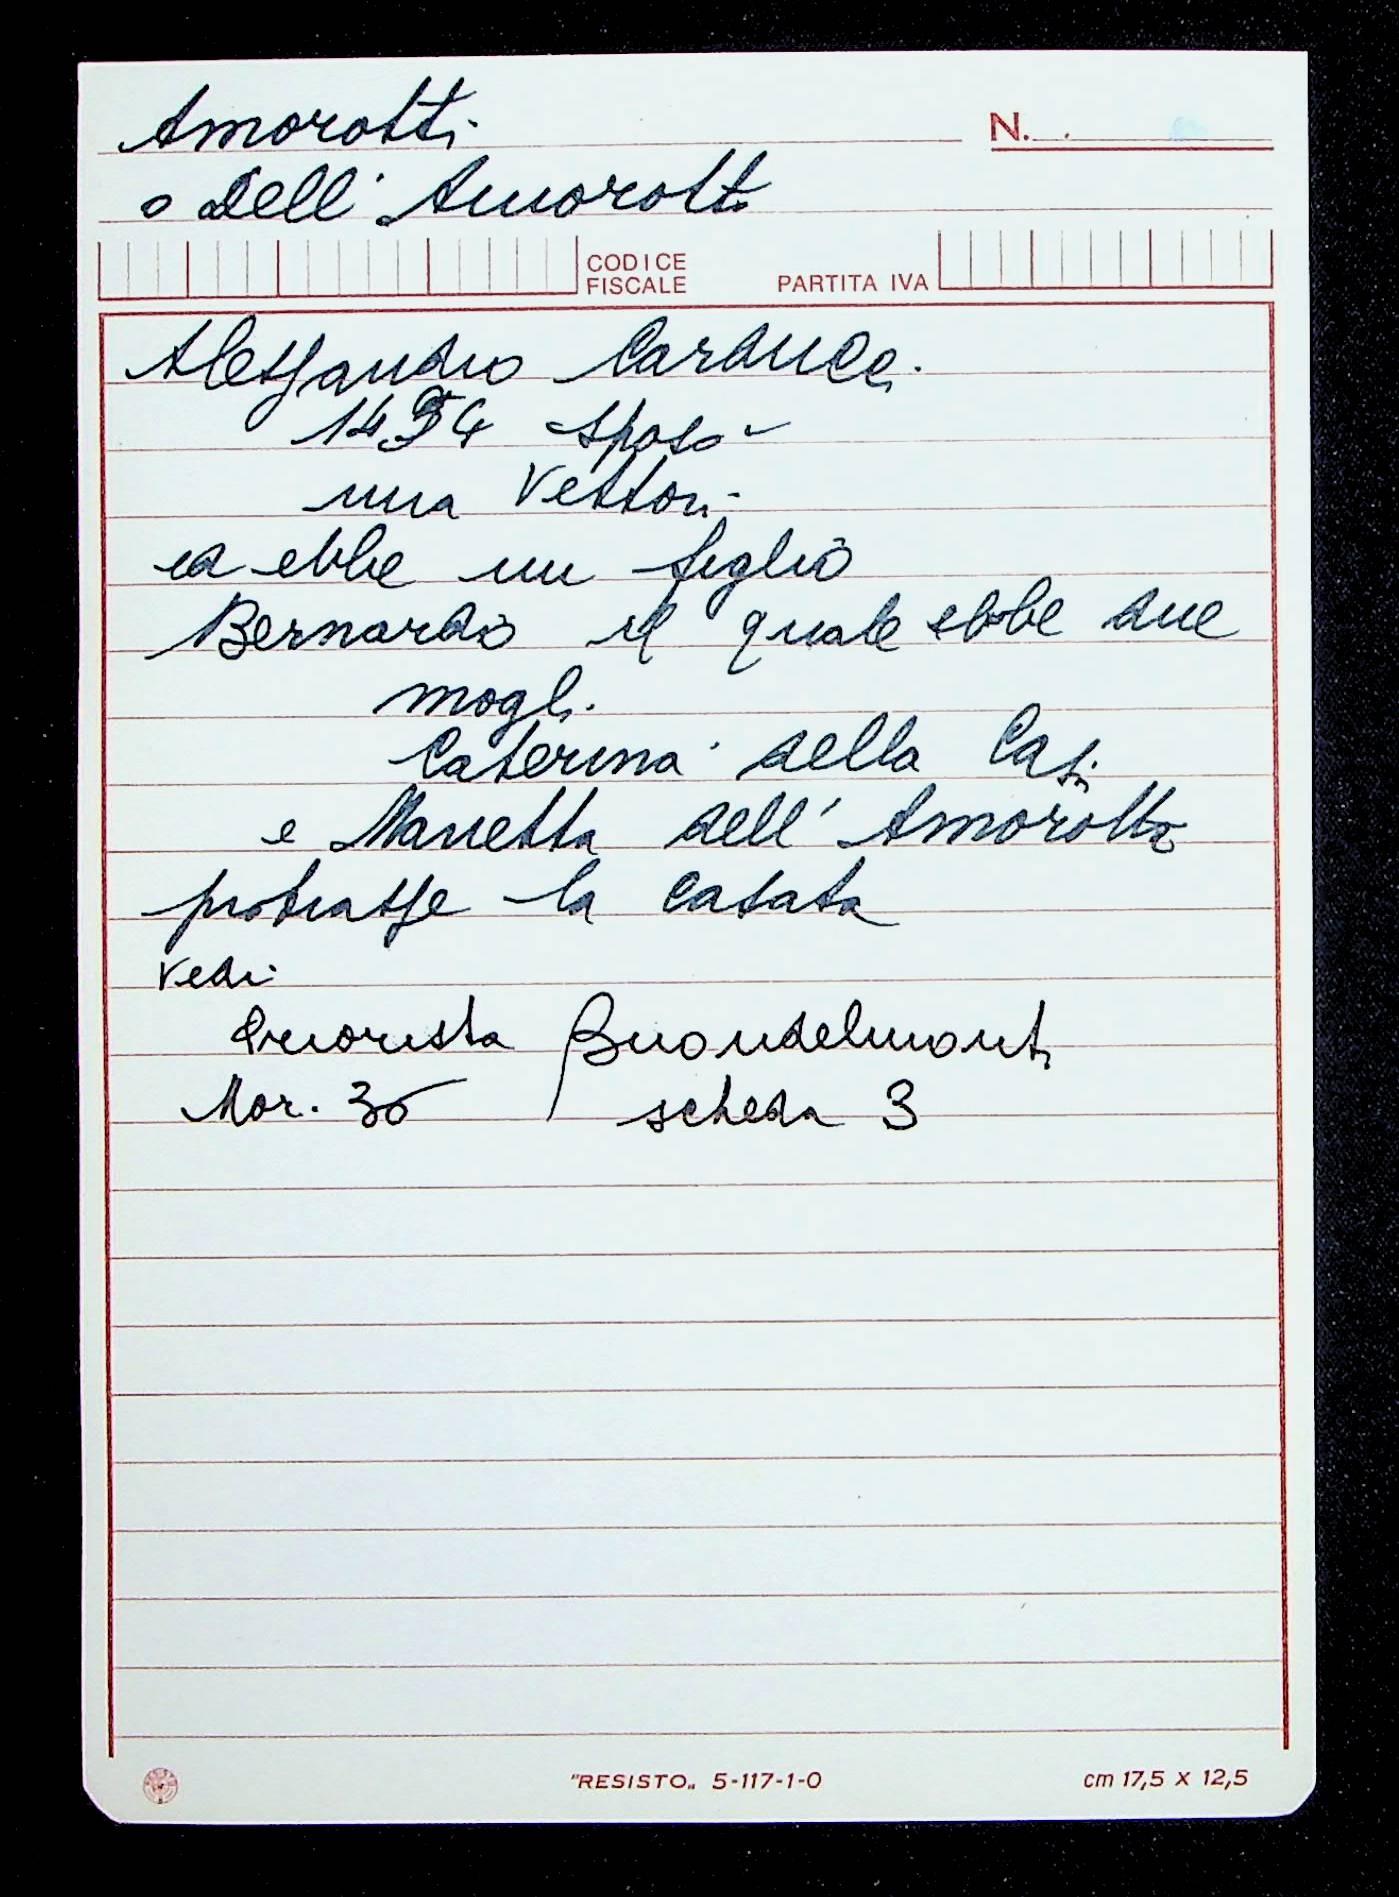 Amorotti
N.
o Dell' Amorotti
CODICE
FISCALE
PARTITA IVA
Alessandro Carducci
sposò
una Vettori
ed ebbe un figlio
Bernardo il quale ebbe due
mogli
Caterina della Casa
e Marietta dell' Amorotto
protrasse la casata
Vedi
Priorista Buondelmonti
Mar. 36 scheda 3
"RESISTO„ 5-117-1-0
cm 17,5 x 12,5